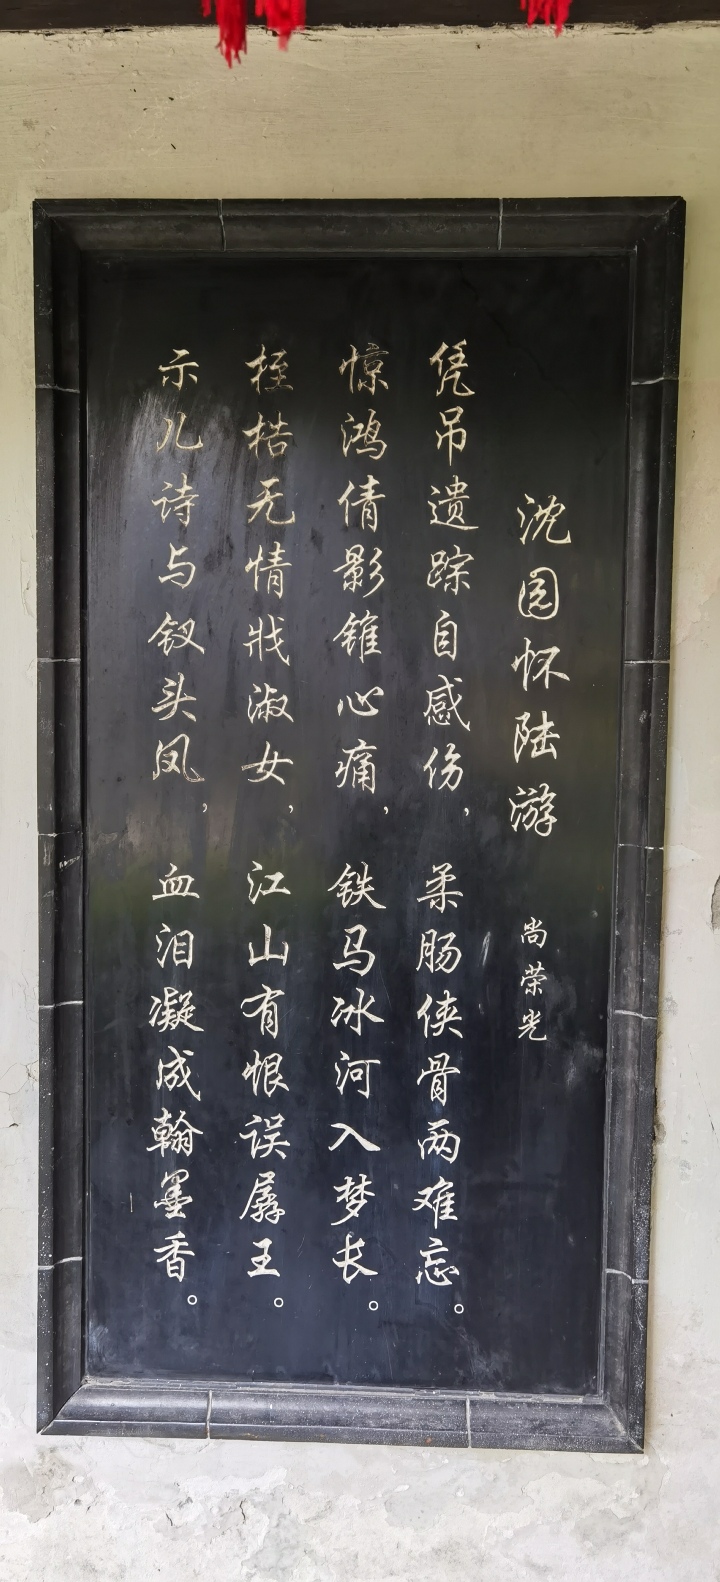 沈园怀陆游 尚荣光
凭吊遗踪自感伤，柔肠侠骨两难忘。
惊鸿倩影锥心痛，铁马冰河入梦长。
桎梏无情戕淑女，江山有恨误孱王。
示儿诗与钗头凤，血泪凝成翰墨香。